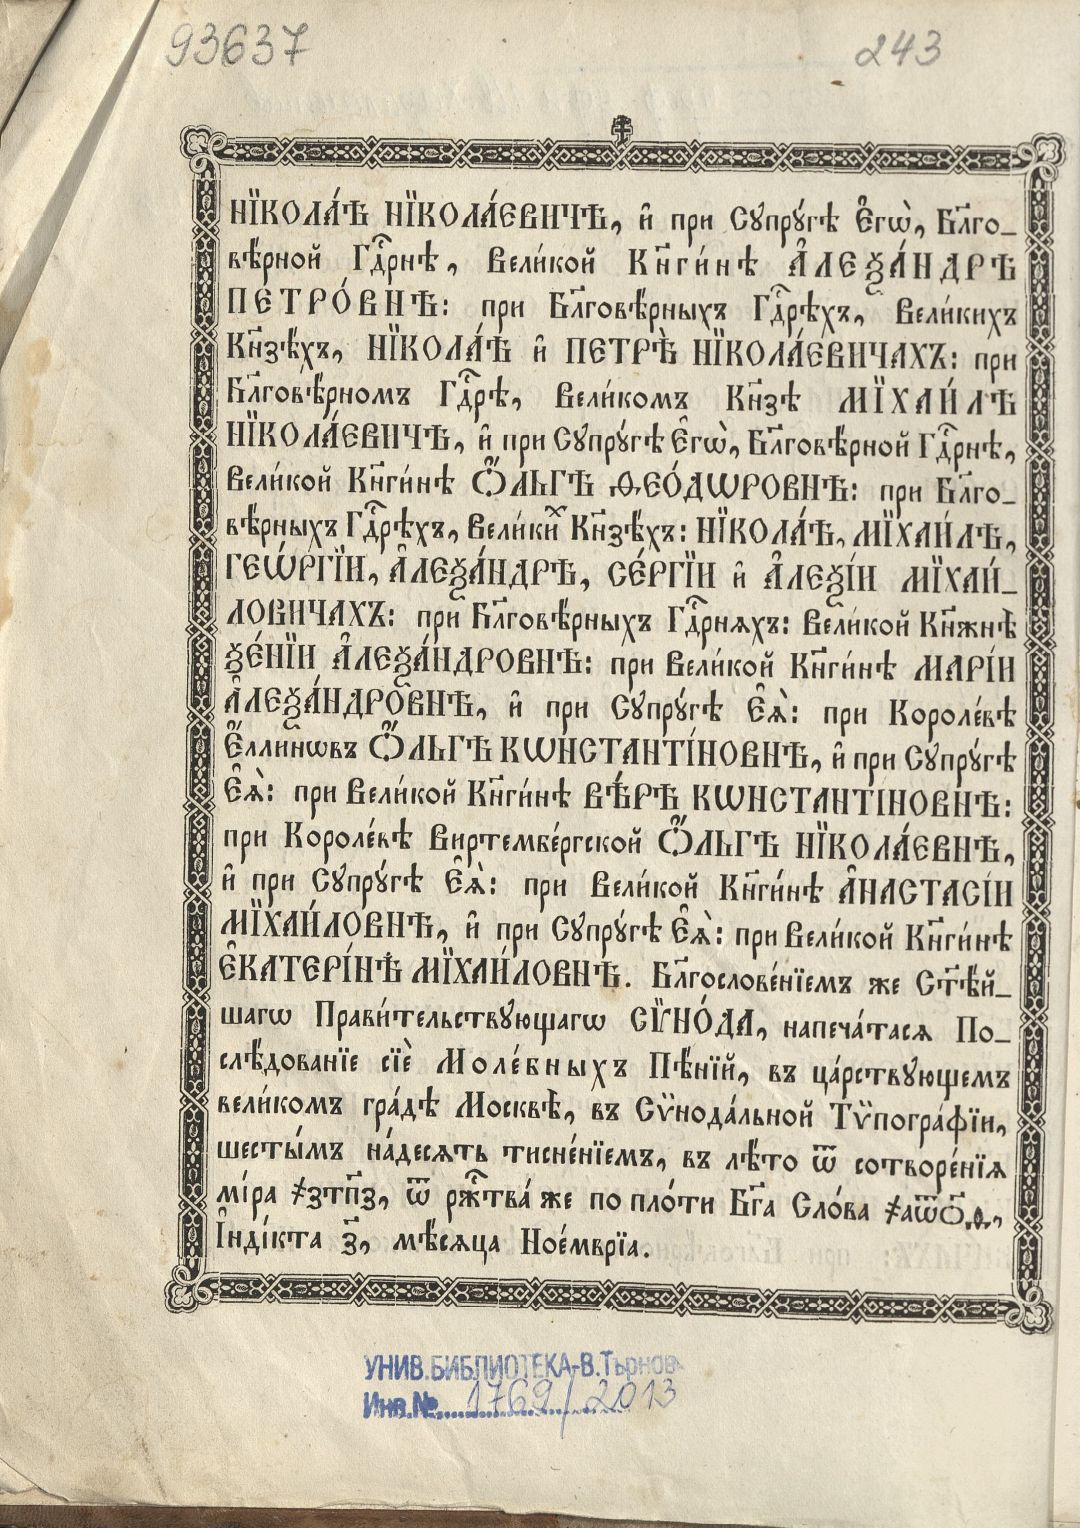 93637
243
НЇКОЛА́Ѣ НЇКОЛА́ЕВИЧѢ, и҆ при Сꙋпрꙋ́гѣ Є҆гѡ̀, Бл҃го_
вѣ́рной Гдⷭ҇рнѣ, Вели́кой Кн҃ги́нѣ А҆ЛЕѮА́НДРѢ
ПЕТРО́ВНѢ: при Бл҃говѣ́рныхъ Гдⷭ҇рѣхъ, Вели́кихъ
Кн҃зѣ́хъ, НЇКОЛА́Ѣ и҆ ПЕТРѢ̀ НЇКОЛА́ЕВИЧАХЪ: при
Бл҃говѣ́рномъ Гдⷭ҇рѣ, Вели́комъ Кн҃зѣ МЇХАИ́ЛѢ
НЇКОЛА́ЕВИЧѢ, и҆ при Сꙋпрꙋ́гѣ Є҆гѡ̀, Бл҃говѣ́рной Гдⷭ҇рнѣ,
Вели́кой Кн҃ги́нѣ Ѻ҆́ЛЬГѢ ѲЕО́ДѠРОВНѢ: при Бл҃го_
вѣ́рныхъ Гдⷭ҇рѣхъ, Вели́киⷯ Кн҃зѣ́хъ: НЇКОЛА́Ѣ, МЇХАИ́ЛѢ,
ГЕѠ́РГЇИ, А҆ЛЕѮА́НДРѢ, СЕ́РГЇИ и҆ А҆ЛЕѮІ́И МЇХАИ́_
ЛОВИЧАХЪ: при Бл҃говѣ́рныхъ Гдⷭ҇рняхъ: Вели́кой Кн҃жнѣ̀
ѮЕ́НЇИ А҆ЛЕѮА́НДРОВНѢ: при Вели́кой Кн҃ги́нѣ МАРІ́И
А҆ЛЕѮА́НДРОВНѢ, и҆ при Сꙋпрꙋ́гѣ Є҆ѧ̀: при Короле́вѣ
Є҆́ллинѡвъ Ѻ҆́ЛЬГѢ КѠНСТАНТІ́НОВНѢ, и҆ при Сꙋпрꙋ́гѣ
Є҆ѧ̀: при Вели́кой Кн҃ги́нѣ ВѢ́РѢ КѠНСТАНТІ́НОВНѢ:
при Короле́вѣ Виртембе́ргской Ѻ҆́ЛЬГѢ НЇКОЛА́ЕВНѢ,
и҆ при Сꙋпрꙋ́гѣ Є҆ѧ̀: при Вели́кой Кн҃ги́нѣ А҆НАСТАСІ́И
МЇХАИ́ЛОВНѢ, и҆ при Сꙋпрꙋ́гѣ Є҆ѧ̀: при Вели́кой Кн҃ги́нѣ
Є҆КАТЕРІ́НѢ МЇХАИ́ЛОВНѢ. Бл҃гослове́нїемъ же Ст҃ѣ́й_
шагѡ Прави́тельствꙋющагѡ СѴНО́ДА, напеча́тасѧ По_
слѣ́дованїе сїѐ Моле́бныхъ Пѣ́нїй, въ ца́рствꙋющемъ
вели́комъ гра́дѣ Москвѣ̀, въ Сѷнода́льной Тѷпогра́фїи,
шесты́мъ на́десѧть тисне́нїемъ, въ лѣ́то ѿ сотворе́нїѧ
мі́ра ҂зтп҃з, ѿ рж҇тва́ же по пло́ти Бг҃а Сло́ва ҂аѿо҃ѳ,
І҆нді́кта з҃, мѣ́сѧца Ное́мврїа.
УНИВ.БИБЛИОТЕКА-В.Търново
Инв.№ 1769/2013